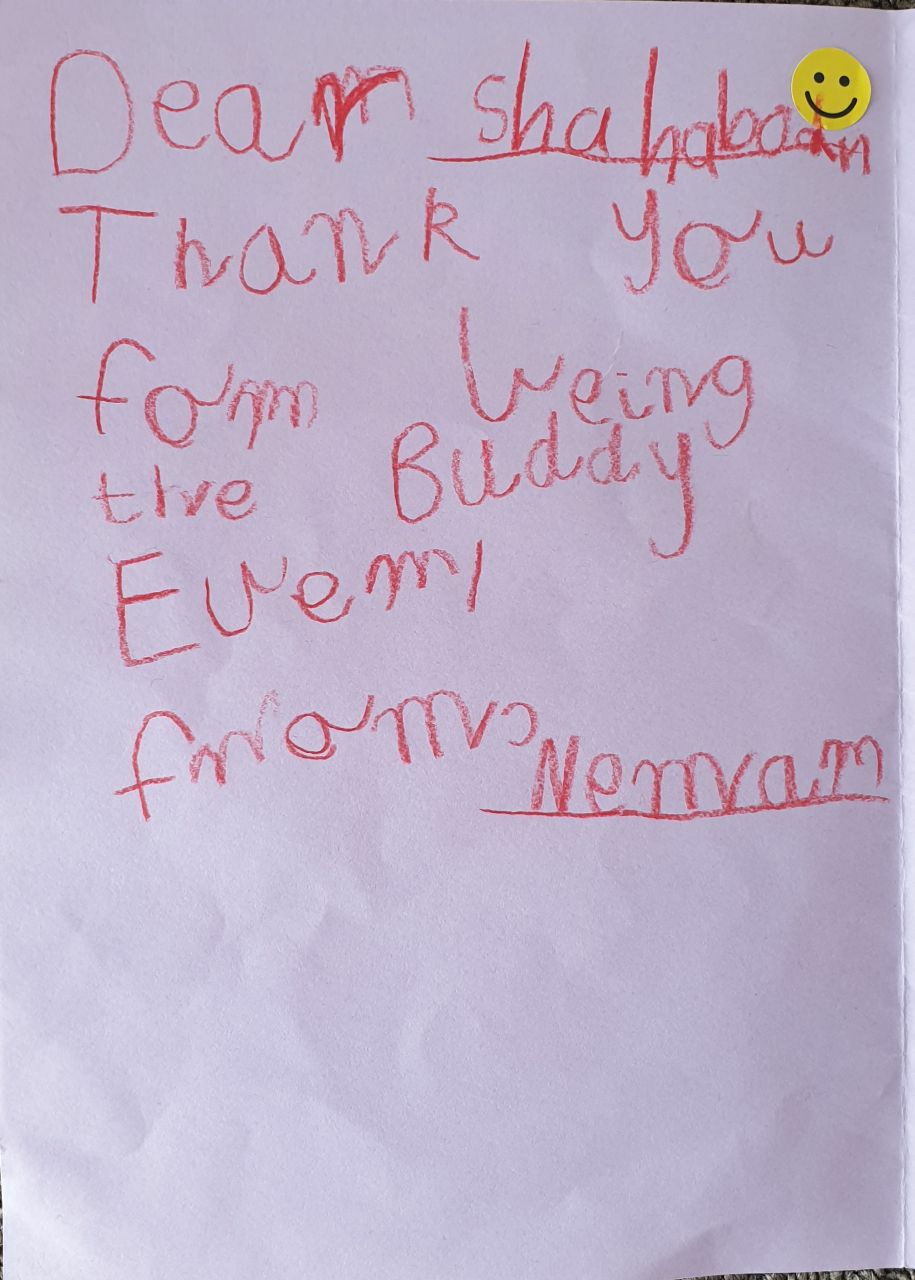 Dear shahabadin
Thank you
for being
the Buddy
Ever!
from Nemram